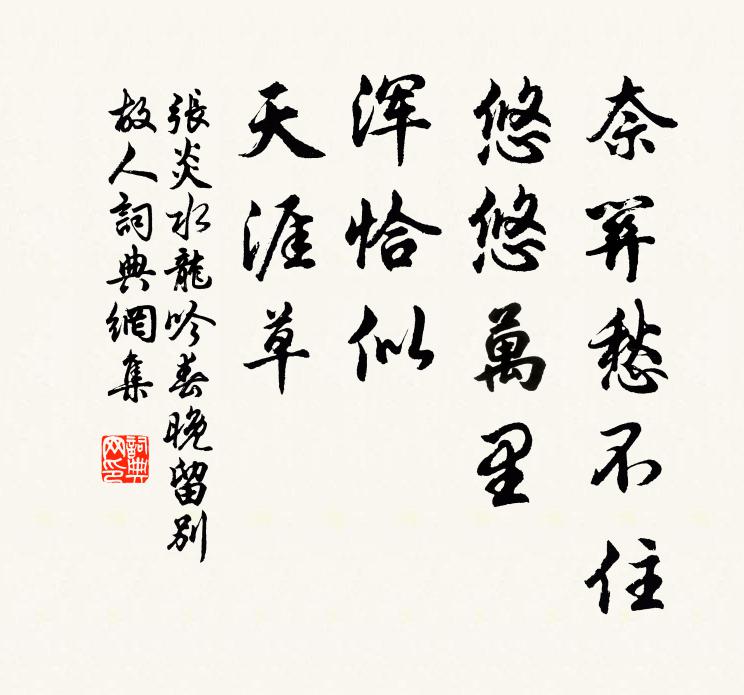 奈關愁不住
悠悠萬里
渾恰似
天涯草
張炎水龍吟春晚留別
故人詞典網集
詞典
网印